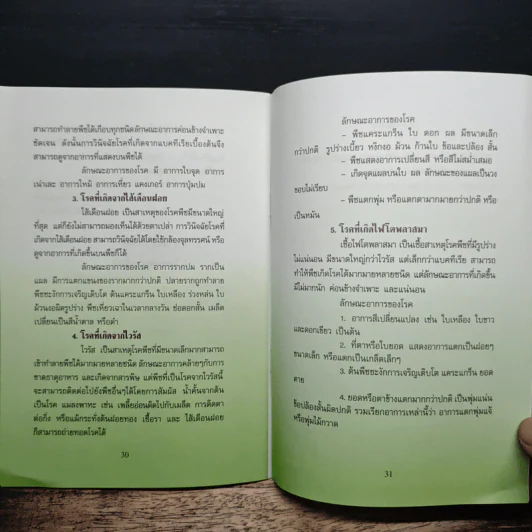 สามารถทำลายพืชได้เกือบทุกชนิดลักษณะอาการค่อนข้างจำเพาะ
ชัดเจน ดังนั้นการวินิจฉัยโรคที่เกิดจากแบคทีเรียเบื้องต้นจึง
สามารถดูจากอาการที่แสดงบนพืชได้
ลักษณะอาการของโรค มี อาการใบจุด อาการ
เน่าเละ อาการไหม้ อาการเหี่ยว แคงเกอร์ อาการปุ่มปม
3. โรคที่เกิดจากไส้เดือนฝอย
ไส้เดือนฝอย เป็นสาเหตุของโรคพืชมีขนาดใหญ่
ที่สุด แต่ก็ยังไม่สามารถมองเห็นได้ด้วยตาเปล่า การวินิจฉัยโรคที่
เกิดจากไส้เดือนฝอย สามารถวินิจฉัยได้โดยใช้กล้องจุลทรรศน์ หรือ
ดูจากอาการที่เกิดขึ้นบนพืชก็ได้
ลักษณะอาการของโรค อาการรากปม รากเป็น
แผล มีการแตกแขนงของรากมากกว่าปกติ ปลายรากถูกทำลาย
พืชชะงักการเจริญเติบโต ต้นแคระแกร็น ใบเหลือง ร่วงหล่น ใบ
ม้วนงอผิดรูปร่าง พืชเหี่ยวเฉาในเวลากลางวัน ช่อดอกสั้น เมล็ด
เปลี่ยนเป็นสีน้ำตาล หรือดำ
4. โรคที่เกิดจากไวรัส
ไวรัส เป็นสาเหตุโรคพืชที่มีขนาดเล็กมากสามารถ
เข้าทำลายพืชได้มากมายหลายชนิด ลักษณะอาการคล้ายๆกับการ
ขาดธาตุอาหาร และเกิดจากสารพิษ แต่พืชที่เป็นโรคจากไวรัสนี้
จะสามารถติดต่อไปยังพืชอื่นๆได้โดยการสัมผัส น้ำคั้นจากต้น
เป็นโรค แมลงพาหะ เช่น เพลี้ยอ่อนติดไปกับเมล็ด การติดตา
ต่อกิ่ง หรือแม้กระทั่งต้นฝอยทอง เชื้อรา และ ไส้เดือนฝอย
ก็สามารถถ่ายทอดโรคได้
30
ลักษณะอาการของโรค
– พืชแคระแกร็น ใบ ดอก ผล มีขนาดเล็ก
กว่าปกติ รูปร่างเบี้ยว หงิกงอ ม้วน ก้านใบ ข้อและปล้อง สั้น
– พืชแสดงอาการเปลี่ยนสี หรือสีไม่สม่ำเสมอ
– เกิดจุดแผลบนใบ ผล ลักษณะของแผลเป็นวง
ขอบไม่เรียบ
– พืชแตกพุ่ม หรือแตกตามากมายกว่าปกติ หรือ
เป็นหมัน
5. โรคที่เกิดไฟโตพลาสมา
เชื้อไฟโตพลาสมา เป็นเชื้อสาเหตุโรคพืชที่มีรูปร่าง
ไม่แน่นอน มีขนาดใหญ่กว่าไวรัส แต่เล็กกว่าแบคทีเรีย สามารถ
ทำให้พืชเกิดโรคได้มากมายหลายชนิด แต่ลักษณะอาการที่เกิดขึ้น
มีไม่มากนัก ค่อนข้างจำเพาะ และแน่นอน
ลักษณะอาการของโรค
1. อาการสีเปลี่ยนแปลง เช่น ใบเหลือง ใบขาว
และดอกเขียว เป็นต้น
2. ที่ตาหรือใบยอด แสดงอาการแตกเป็นฝอยๆ
ขนาดเล็ก หรือแตกเป็นเกล็ดเล็กๆ
3. ต้นพืชชะงักการเจริญเติบโต แคระแกร็น ยอด
ตาย
4. ยอดหรือตาข้างแตกมากกว่าปกติ เป็นพุ่มแน่น
ข้อปล้องสั้นผิดปกติ รวมเรียกอาการเหล่านี้ว่า อาการแตกพุ่มแจ้
หรือพุ่มไม้กวาด
31